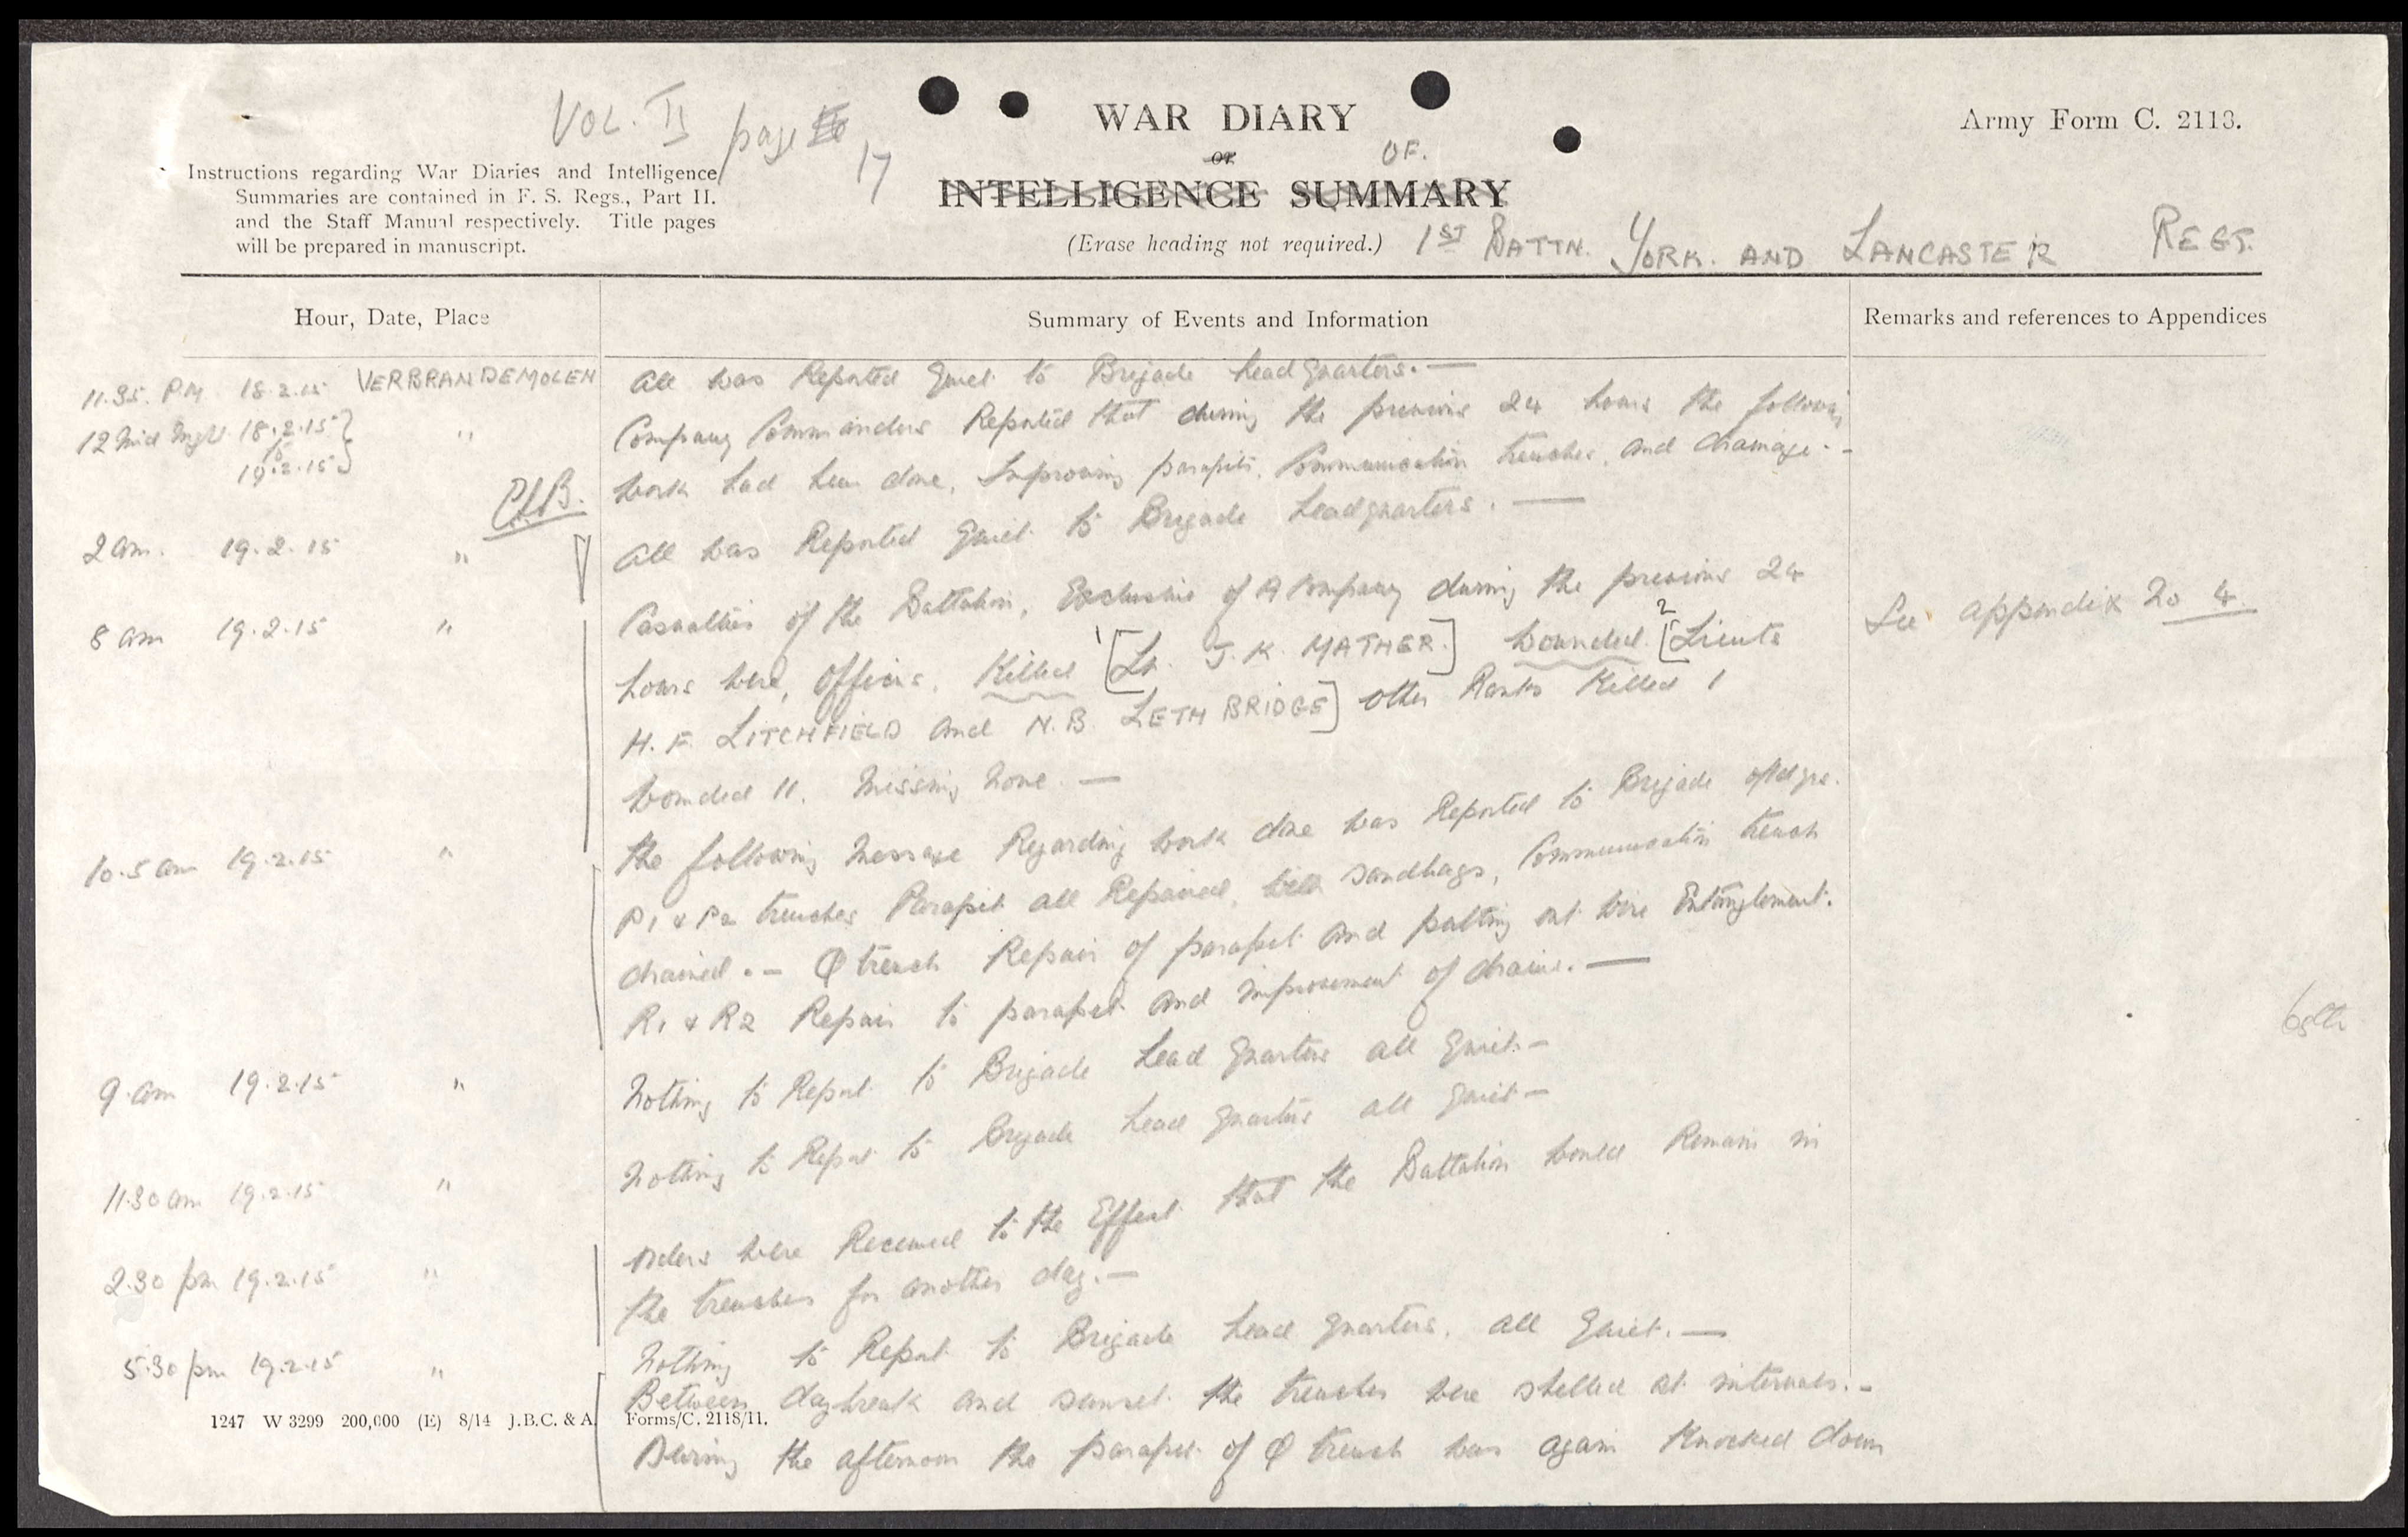 VOL. II page 17
WAR DIARY
Army Form C. 2118.
or OF.
Instructions regarding War Diaries and Intelligence
Summaries are contained in F. S. Regs., Part II.
and the Staff Manual respectively. Title pages
will be prepared in manuscript.
INTELLIGENCE SUMMARY
(Erase heading not required.) 1ST BATTN. YORK. AND LANCASTER REGT.
Hour, Date, Place
Summary of Events and Information
Remarks and references to Appendices
11.35. P.M 18.2.15 VERBRANDEMOLEN All was Reported Quiet to Brigade Head Quarters. —
12 Mid Night 18.2.15 " Company Commanders Reported that during the previous 24 hours the following
to
19.2.15 work had been done, Improving parapets, Communication trenches, and drainage. -
2 am. 19.2.15 " All was Reported Quiet to Brigade Headquarters. —
8 am 19.2.15 " Casualties of the Battalion, Exclusive of A Company during the previous 24
See appendix No 4
hours were, Officers, Killed 1 [Lt. J.K. MATHER.] wounded. 2 [Lieuts
H.F. LITCHFIELD and N.B. LETHBRIDGE] other Ranks Killed 1
wounded 11. Missing None. —
10.5 am 19.2.15 " The following message Regarding work done was Reported to Brigade Hdqrs.
P1 & P2 trenches Parapet all Repaired, with sandbags, Communication trench
drained. — Q trench Repair of parapet and putting out wire Entanglement.
R1 & R2 Repair to parapet and improvement of drains. —
9. am 19.2.15 " Nothing to Report to Brigade Head Quarters all Quiet. —
11.30 am 19.2.15 " Nothing to Report to Brigade Head Quarters all Quiet —
2.30 pm 19.2.15 " Orders were Received to the Effect that the Battalion would Remain in
the trenches for another day. —
5.30 pm 19.2.15 " Nothing to Report to Brigade Head Quarters, all Quiet. —
Between daybreak and sunset the trenches were shelled at intervals. -
1247 W 3299 200,000 (E) 8/14 J.B.C. & A. Forms/C. 2118/11.
During the afternoon the parapet of Q trench was again Knocked down